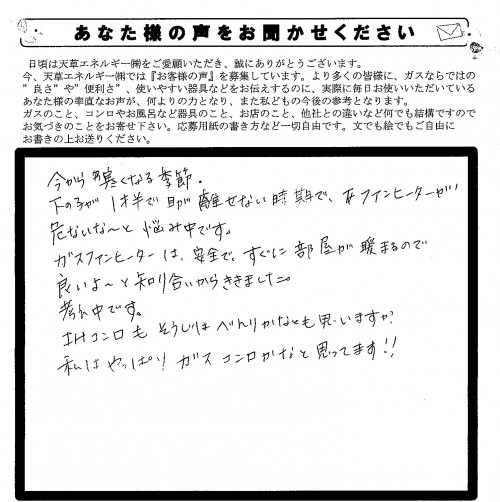 あなた様の声をお聞かせください
日頃は天草エネルギー㈱をご愛顧いただき、誠にありがとうございます。
今、天草エネルギー㈱では『お客様の声』を募集しています。より多くの皆様に、ガスならではの
”良さ”や”便利さ”、使いやすい器具などをお伝えするのに、実際に毎日お使いいただいている
あなた様の率直なお声が、何よりの力となり、また私どもの今後の参考となります。
ガスのこと、コンロやお風呂など器具のこと、お店のこと、他社との違いなど何でも結構ですので
お気づきのことをお寄せ下さい。応募用紙の書き方など一切自由です。文でも絵でもご自由に
お書きの上お送りください。
今から寒くなる季節．
下の子が1才半で目が離せない時期で、ファンヒーターが
危ないな～と悩み中です。
ガスファンヒーターは、安全で、すぐに部屋が暖まるので
良いよ～と知り合いからききました。
考え中です。
IHコンロもそうじはべんりかなとも思いますが
私はやっぱりガスコンロかなと思ってます!!